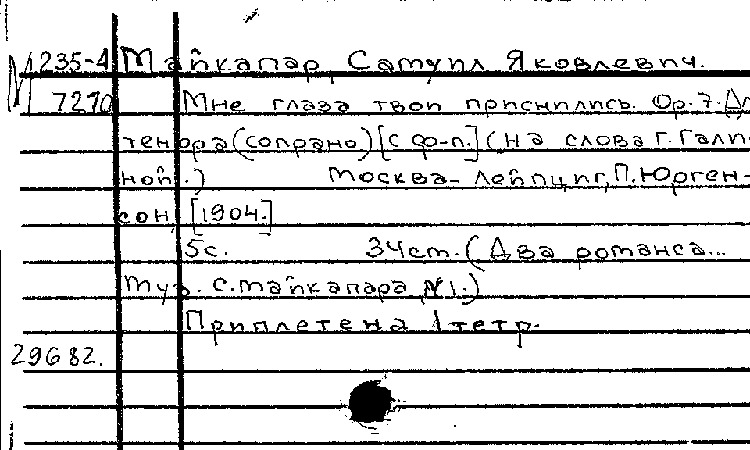 М 235-4 Майкапар, Самуил Яковлевич.
7270 Мне глаза твои приснились. Op. 7. Дл
тенора (сопрано) [с ф-п.] (на слова Г. Гали-
ной.) Москва-Лейпциг, П. Юрген-
сон, [1904.]
5с. 34ст. (Два романса...
муз. С. Майкапара, №1.)
Приплетена 1 тетр.
29682.